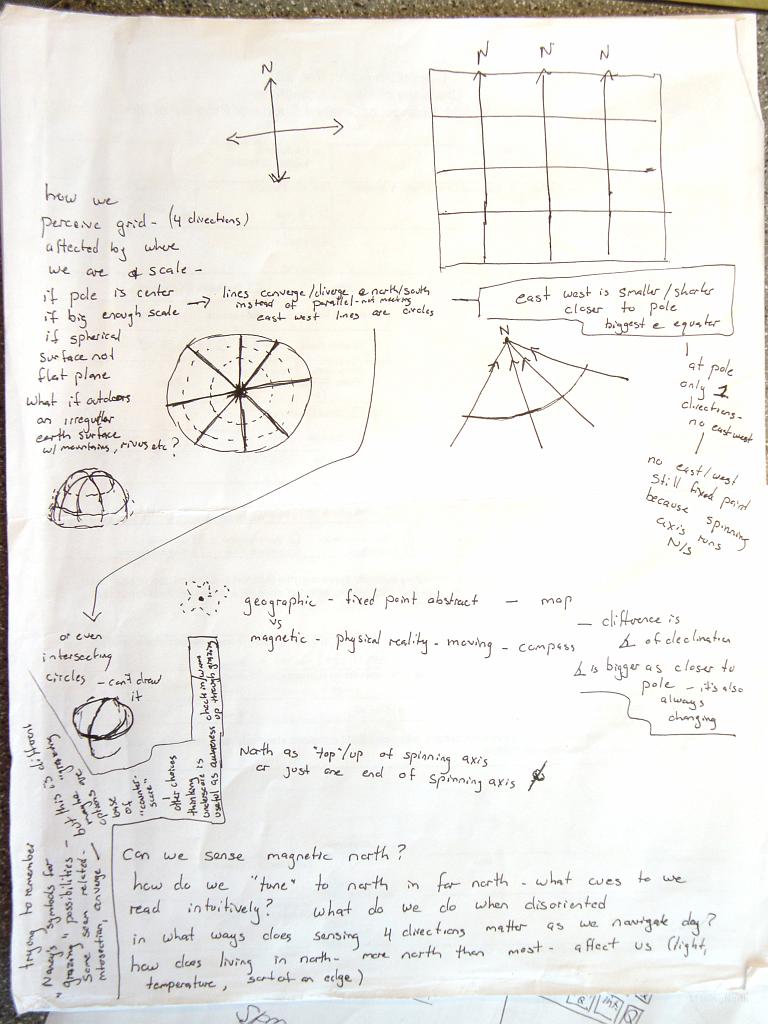 N
N N N
how we
perceive grid - (4 directions)
affected by where
we are & scale -
if pole is center
if big enough scale
if spherical
surface not
flat plane
What if outdoors
on irregular
earth surface
w/ mountains, rivers etc?
lines converge/diverge @ north/south
instead of parallel - not meeting
east west lines are circles
east west is smaller/shorter
closer to pole
biggest @ equator
N
at pole
only 1
directions -
no east west
no east/west
still fixed point
because spinning
axis runs
N/S
or even
intersecting
circles - can't draw
it
geographic - fixed point abstract - map
vs
magnetic - physical reality - moving - compass
- difference is
∡ of declination
∡ is bigger as closer to
pole - it's also
always
changing
North as "top"/up of spinning axis
or just one end of spinning axis
useful as awareness check in/
up through grazing
underscore is
thinking
other choices
"counter-
score"
base
of
options
maybe are
but this "grazing
is different
trying to remember
Nancy's symbols for
"grazing" possibilities -
Some seem related -
intersection, converge
Can we sense magnetic north?
how do we "tune" to north in far north - what cues to we
read intuitively? what do we do when disoriented
in what ways does sensing 4 directions matter as we navigate day?
how does living in north - more north than most - affect us (light,
temperature, sort of an edge)